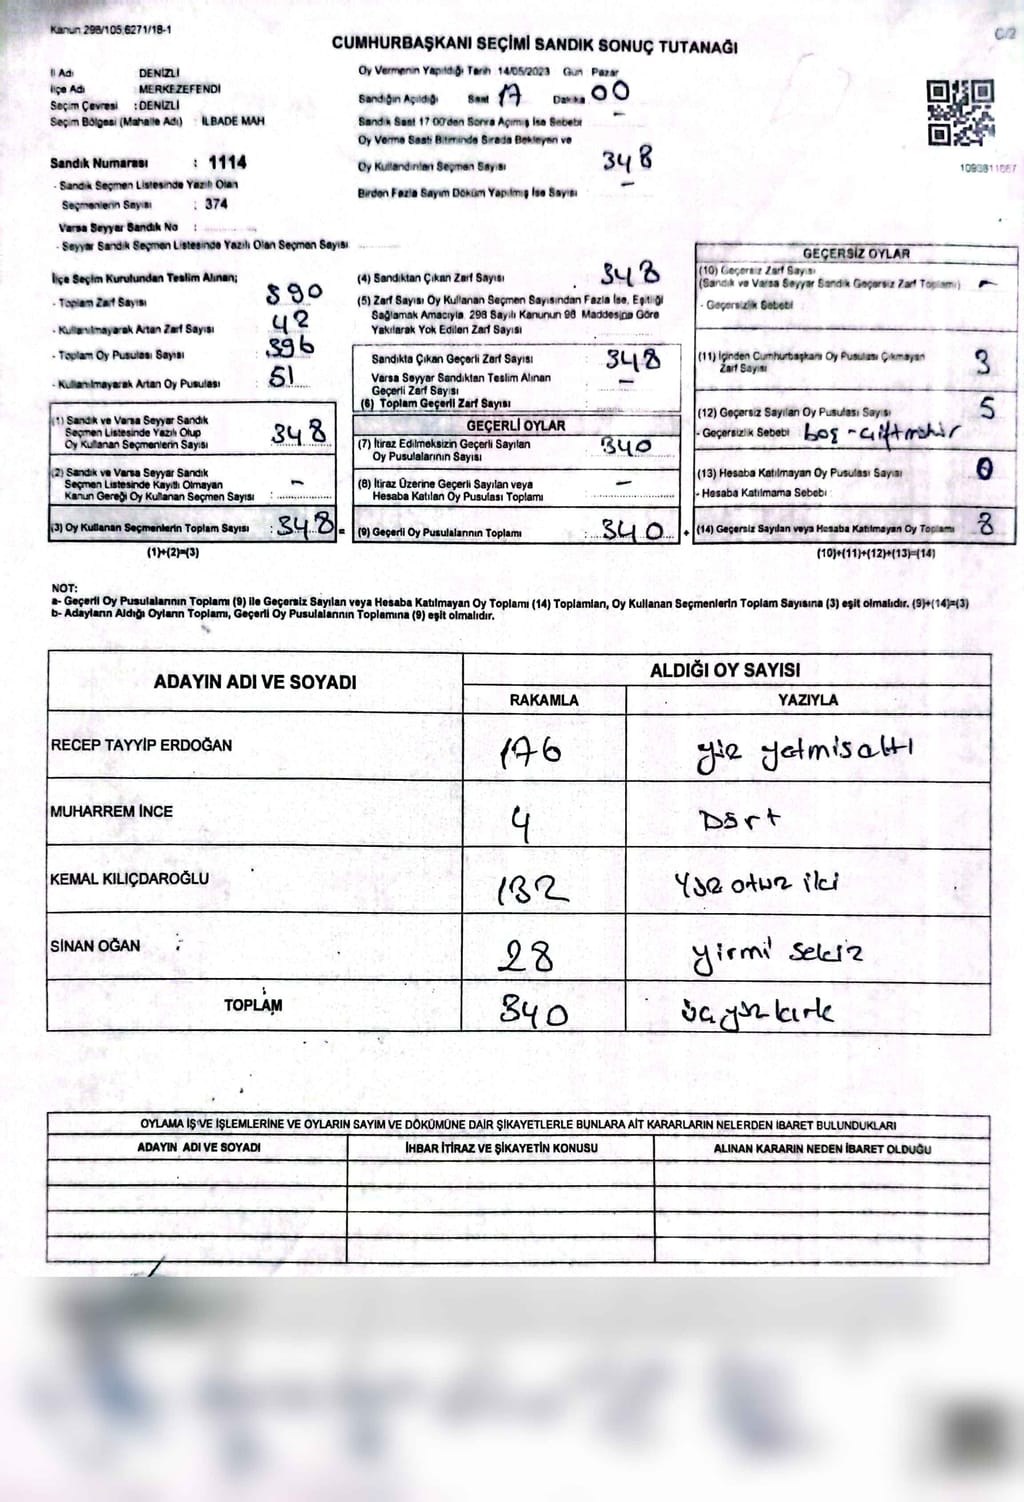 Kanun 298/105,6271/18-1
C/2
CUMHURBAŞKANI SEÇİMİ SANDIK SONUÇ TUTANAĞI
İl Adı DENİZLİ
İlçe Adı : MERKEZEFENDİ
Seçim Çevresi : DENİZLİ
Seçim Bölgesi (Mahalle Adı) : İLBADE MAH
Sandık Numarası : 1114
- Sandık Seçmen Listesinde Yazılı Olan
Seçmenlerin Sayısı : 374
Varsa Seyyar Sandık No :
- Seyyar Sandık Seçmen Listesinde Yazılı Olan Seçmen Sayısı
Oy Vermenin Yapıldığı Tarih 14/05/2023 Gün Pazar
Sandığın Açıldığı Saat 17 Dakika 00
Sandık Saat 17:00'den Sonra Açılmış İse Sebebi -
Oy Verme Saati Bitiminde Sırada Bekleyen ve
Oy Kullandırılan Seçmen Sayısı 348
Birden Fazla Sayım Döküm Yapılmış İse Sayısı -
İlçe Seçim Kurulundan Teslim Alınan;
- Toplam Zarf Sayısı : 390
- Kullanılmayarak Artan Zarf Sayısı : 42
- Toplam Oy Pusulası Sayısı : 396
- Kullanılmayarak Artan Oy Pusulası : 51
(1) Sandık ve Varsa Seyyar Sandık
Seçmen Listesinde Yazılı Olup
Oy Kullanan Seçmenlerin Sayısı : 348
(2) Sandık ve Varsa Seyyar Sandık
Seçmen Listesinde Kayıtlı Olmayan
Kanun Gereği Oy Kullanan Seçmen Sayısı : -
(3) Oy Kullanan Seçmenlerin Toplam Sayısı : 348 =
(1)+(2)=(3)
(4) Sandıktan Çıkan Zarf Sayısı 348
(5) Zarf Sayısı Oy Kullanan Seçmen Sayısından Fazla İse, Eşitliği
Sağlamak Amacıyla 298 Sayılı Kanunun 98 Maddesine Göre
Yakılarak Yok Edilen Zarf Sayısı
Sandıkta Çıkan Geçerli Zarf Sayısı 348
Varsa Seyyar Sandıktan Teslim Alınan
Geçerli Zarf Sayısı -
(6) Toplam Geçerli Zarf Sayısı
GEÇERLİ OYLAR
(7) İtiraz Edilmeksizin Geçerli Sayılan
Oy Pusulalarının Sayısı 340
(8) İtiraz Üzerine Geçerli Sayılan veya
Hesaba Katılan Oy Pusulası Toplamı -
(9) Geçerli Oy Pusulalarının Toplamı : 340 +
GEÇERSİZ OYLAR
(10) Geçersiz Zarf Sayısı
(Sandık ve Varsa Seyyar Sandık Geçersiz Zarf Toplamı) -
- Geçersizlik Sebebi
(11) İçinden Cumhurbaşkanı Oy Pusulası Çıkmayan
Zarf Sayısı 3
(12) Geçersiz Sayılan Oy Pusulası Sayısı 5
- Geçersizlik Sebebi boş - çift mühür
(13) Hesaba Katılmayan Oy Pusulası Sayısı 0
- Hesaba Katılmama Sebebi
(14) Geçersiz Sayılan veya Hesaba Katılmayan Oy Toplamı 8
(10)+(11)+(12)+(13)=(14)
NOT:
a- Geçerli Oy Pusulalarının Toplamı (9) ile Geçersiz Sayılan veya Hesaba Katılmayan Oy Toplamı (14) Toplamları, Oy Kullanan Seçmenlerin Toplam Sayısına (3) eşit olmalıdır. (9)+(14)=(3)
b- Adayların Aldığı Oyların Toplamı, Geçerli Oy Pusulalarının Toplamına (9) eşit olmalıdır.
ADAYIN ADI VE SOYADI ALDIĞI OY SAYISI
RAKAMLA YAZIYLA
RECEP TAYYİP ERDOĞAN 176 yüz yetmiş altı
MUHARREM İNCE 4 Dört
KEMAL KILIÇDAROĞLU 132 Yüz otuz iki
SİNAN OĞAN 28 yirmi sekiz
TOPLAM 340 üç yüz kırk
OYLAMA İŞ VE İŞLEMLERİNE VE OYLARIN SAYIM VE DÖKÜMÜNE DAİR ŞİKAYETLERLE BUNLARA AİT KARARLARIN NELERDEN İBARET BULUNDUKLARI
ADAYIN ADI VE SOYADI İHBAR İTİRAZ VE ŞİKAYETİN KONUSU ALINAN KARARIN NEDEN İBARET OLDUĞU